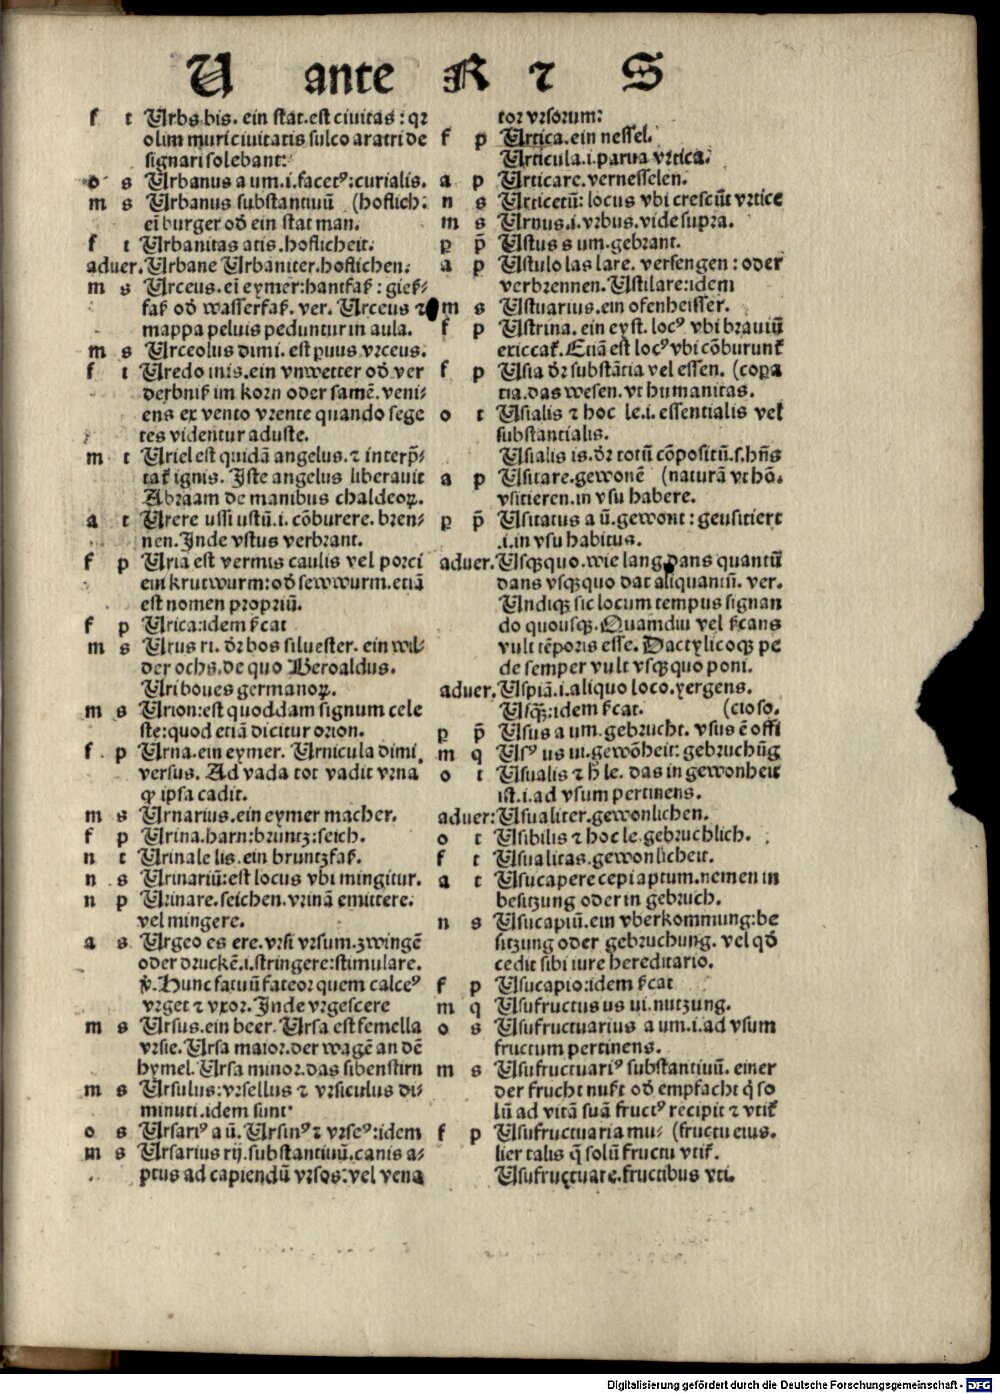 U ante R ⁊ S
f t Urbs bis. ein stat. est ciuitas : qꝛ
olim muri ciuitatis sulco aratri de
signari solebant:
o s Urbanus a um. i. facetꝰ: curialis.
m s Urbanus substantiuū (hoflich:
eī burger od̄ ein stat man.
f t Urbanitas atis. hoflicheit.
aduer. Urbane Urbaniter. hoflichen.
m s Urceus. eī eymer: hantfaß : gieß⸗
faß od̄ wasserfaß. ver. Urceus ⁊
mappa peluis peduntur in aula.
m s Urceolus dimi. est puus vrceus.
f t Uredo inis. ein vnwetter od̄ ver
derbniß im korn oder samē. veni⸗
ens ex vento vrente quando sege
tes videntur aduste.
m t Uriel est quidā angelus. ⁊ interp̄⸗
tat̄ ignis. Iste angelus liberauit
Abraam de manibus chaldeoꝝ.
a t Urere ussi ustū. i. cōburere. bren⸗
nen. Inde vstus verbrant.
f p Uria est vermis caulis vel porci
ein krutwurm: od̄ sewwurm. etiā
est nomen propriū.
f p Urica: idem ẜcat
m s Urus ri. dr̄ bos siluester. ein wil⸗
der ochs. de quo Beroaldus.
Uri boues germanoꝝ.
m s Urion: est quoddam signum cele
ste: quod etiā dicitur orion.
f p Urna. ein eymer. Urnicula dimi.
versus. Ad vada tot vadit vrna
ꝙ ipsa cadit.
m s Urnarius. ein eymer macher.
f p Urina. harn: bruntz: seich.
n t Urinale lis. ein bruntzfaß.
n s Urinariū: est locus vbi mingitur.
n p Urinare. seichen. vrinā emittere.
vel mingere.
a s Urgeo es ere. vrsi vrsum. zwingē
oder druckē. i. stringere: stimulare.
v̄. Hunc fatuū fateor quem calceꝰ
vrget ⁊ vxor. Inde vrgescere
m s Ursus. ein beer. Ursa est femella
vrsie. Ursa maior. der wagē an dē
hymel. Ursa minor. das sibenstirn
m s Ursulus: vrsellus ⁊ vrsiculus di⸗
minuti. idem sunt
o s Ursariꝰ a ū. Ursinꝰ ⁊ vrseꝰ: idem
m s Ursarius rij. substantiuū. canis a⸗
ptus ad capiendū vrsos: vel vena
tor vrsorum:
f p Urtica. ein nessel.
Urticula. i. parua vrtica.
a p Urticare. vernesselen.
n s Urticetū: locus vbi crescūt vrtice
m s Urnus. i. vrbus. vide supra.
p p̄ Ustus s um. gebrant.
a p Ustulo las lare. versengen : oder
verbrennen. Ustilare: idem
m s Ustuarius. ein ofenheisser.
f p Ustrina. ein eyst. locꝰ vbi brauiū
exiccat̄. Etiā est locꝰ vbi cōburunt̄
f p Usia dr̄ substātia vel essen. (copia
tia. das wesen. vt humanitas.
o t Usialis ⁊ hoc le. i. essentialis vel
substantialis.
Usialis is. dr̄ totū cōpositū. s. hn̄s
a p Usitare. gewonē (naturā vt hō.
vsitieren. in vsu habere.
p p̄ Usitatus a ū. gewont : geusitiert
.i. in vsu habitus.
aduer. Usqꝫquo. wie lang dans quantū
dans vsqꝫquo dat aliquantū. ver.
Undiqꝫ sic locum tempus signan
do quousqꝫ. Quamdiu vel ẜcans
vult tēporis esse. Dactylicoqꝫ pe
de semper vult vsqꝫquo poni.
aduer. Uspiā. i. aliquo loco. vergens.
Usqꝫ: idem ẜcat. (cioso.
p p̄ Usus a um. gebrucht. vsus ē offi
m q Usꝰ us ui. gewōheit: gebruchūg
o t Usualis ⁊ h̄ le. das in gewonheit
ist. i. ad vsum pertinens.
aduer: Usualiter. gewonlichen.
o t Usibilis ⁊ hoc le. gebruchlich.
f t Usualitas. gewonlicheit.
a t Usucapere cepi aptum. nemen in
besitzung oder in gebruch.
n s Usucapiū. ein vberkommung: be
sitzung oder gebruchung. vel qd̄
cedit sibi iure hereditario.
f p Usucapio: idem ẜcat
m q Usufructus us ui. nutzung.
o s Usufructuarius a um. i. ad vsum
fructum pertinens.
m s Usufructuariꝰ substantiuū. einer
der frucht nußt od̄ empfacht q̄ so
lū ad vitā suā fructꝰ recipit ⁊ vtit̄
f p Usufructuaria mu⸗ (fructu eius.
lier talis q̄ solū fructu vtit̄.
Usufructuare. fructibus vti.
Digitalisierung gefördert durch die Deutsche Forschungsgemeinschaft - DFG